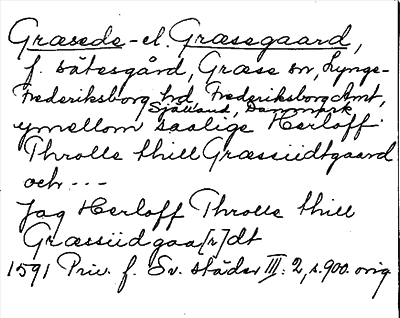 Græsede- el. Græsegaard,
f. sätesgård, Græse sn, Lynge-
Frederiksborg hrd, Frederiksborg Amt,
Sjælland, Danmark
ymellom saalige Herloff
Throlle thill Græssiidtgaard
och - - -
Jag Herloff Throlle thill
Græssiidgaa[r]dt
1591 Priv. f. Sv. städer III: 2, s. 900. orig